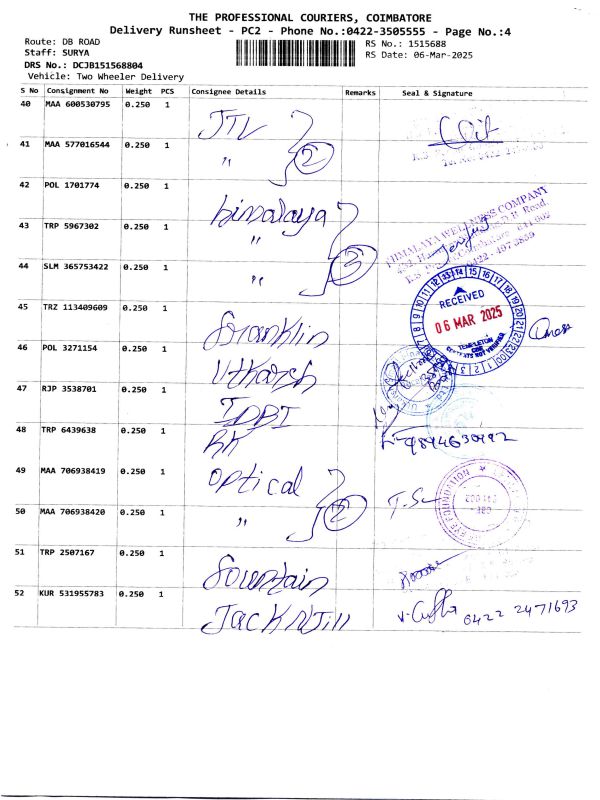 THE PROFESSIONAL COURIERS, COIMBATORE
Delivery Runsheet - PC2 - Phone No.:0422-3505555 - Page No.:4
Route: DB ROAD
RS No.: 1515688
Staff: SURYA
RS Date: 06-Mar-2025
DRS No.: DCJB151568804
Vehicle: Two Wheeler Delivery
S No Consignment No Weight PCS Consignee Details Remarks Seal & Signature
40 MAA 600530795 0.250 1 JTL
41 MAA 577016544 0.250 1 " 2
42 POL 1701774 0.250 1 himalaya
HIMALAYA WELLNESS COMPANY
43 TRP 5967302 0.250 1 "
44 SLM 365753422 0.250 1 " 3
45 TRZ 113409609 0.250 1 Franklin
RECEIVED
06 MAR 2025
TEMPLETON
CONTENTS NOT VERIFIED
46 POL 3271154 0.250 1 Utkarsh
47 RJP 3538701 0.250 1 IDBI
48 TRP 6439638 0.250 1 RK
9894630992
49 MAA 706938419 0.250 1 optical
50 MAA 706938420 0.250 1 " 2
FOUNDATION
51 TRP 2507167 0.250 1 Fountain
52 KUR 531955783 0.250 1 Jack N Jill
0422 2471693